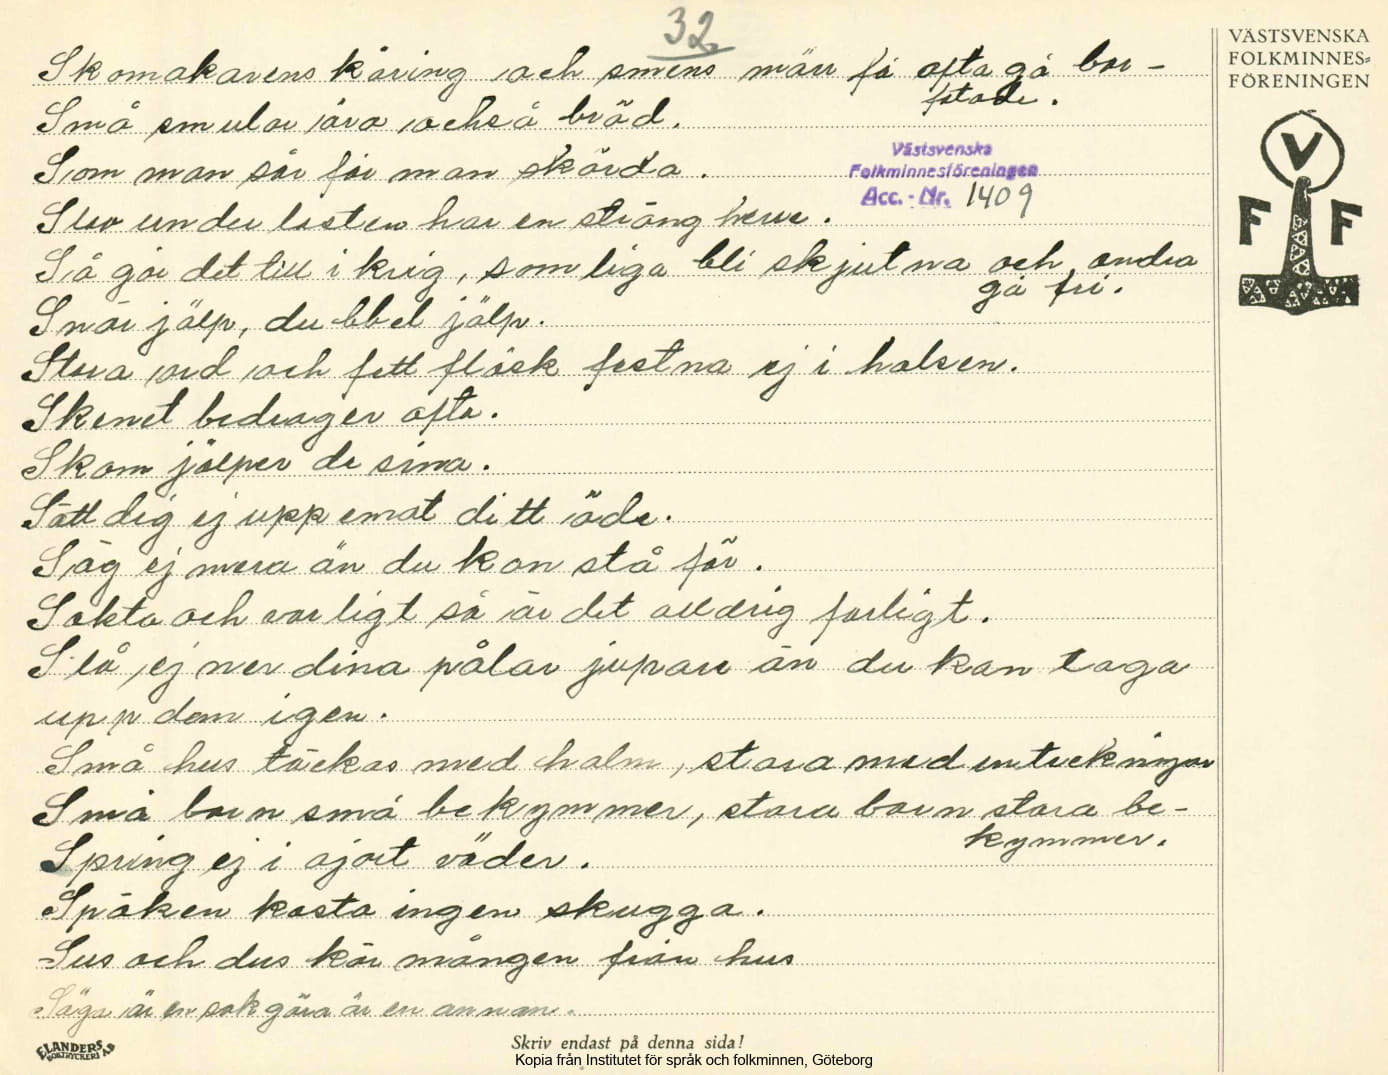 32.
VÄSTSVENSKA
FOLKMINNES-
FÖRENINGEN
V
F F
Skomakarens käring och smens märr få ofta gå bar-
fotade.
Små smular äro också bröd.
Som man sår får man skörda.
Slav under lasten har en sträng herre.
Så går det till i krig, somliga bli skjutna och andra
gå fri.
Snar jälp, dubbel jälp.
Stora ord och fett fläsk festna ej i halsen.
Skenet bedrager ofta.
Skam jälper de sina.
Sätt dig ej upp emot ditt öde.
Säg ej mera än du kan stå för.
Sakta och varligt så är det alldrig farligt.
Slå ej ner dina pålar jupare än du kan taga
upp dem igen.
Små hus täckas med halm, stora med inteckningar
Små barn små bekymmer, stora barn stora be-
kymmer.
Spring ej i ojort väder.
Spöken kasta ingen skugga.
Sus och dus kör mången från hus
Säga är en sak göra är en annan.
Västsvenska
Folkminnesföreningen
Acc. - Nr. 1409
ELANDERS
BOKTRYCKERI AB
Skriv endast på denna sida!
Kopia från Institutet för språk och folkminnen, Göteborg